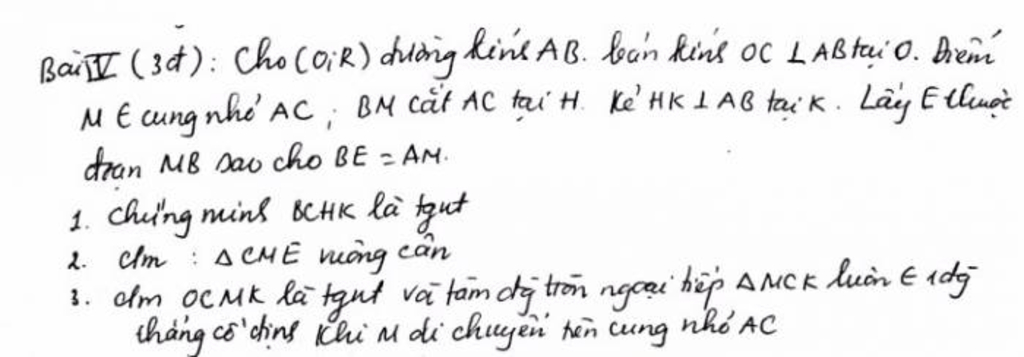 Bài IV (3đ): Cho (O;R) đường kính AB. bán kính OC ⊥ AB tại O. Điểm
M ∈ cung nhỏ AC; BM cắt AC tại H. Kẻ HK ⊥ AB tại K. Lấy E thuộc
đoạn MB sao cho BE = AM.
1. Chứng minh BCHK là tgnt
2. c/m : △CME vuông cân
3. c/m OCMK là tgnt và tâm đg tròn ngoại tiếp △MCK luôn ∈ 1 đg
thẳng cố định khi M di chuyển trên cung nhỏ AC